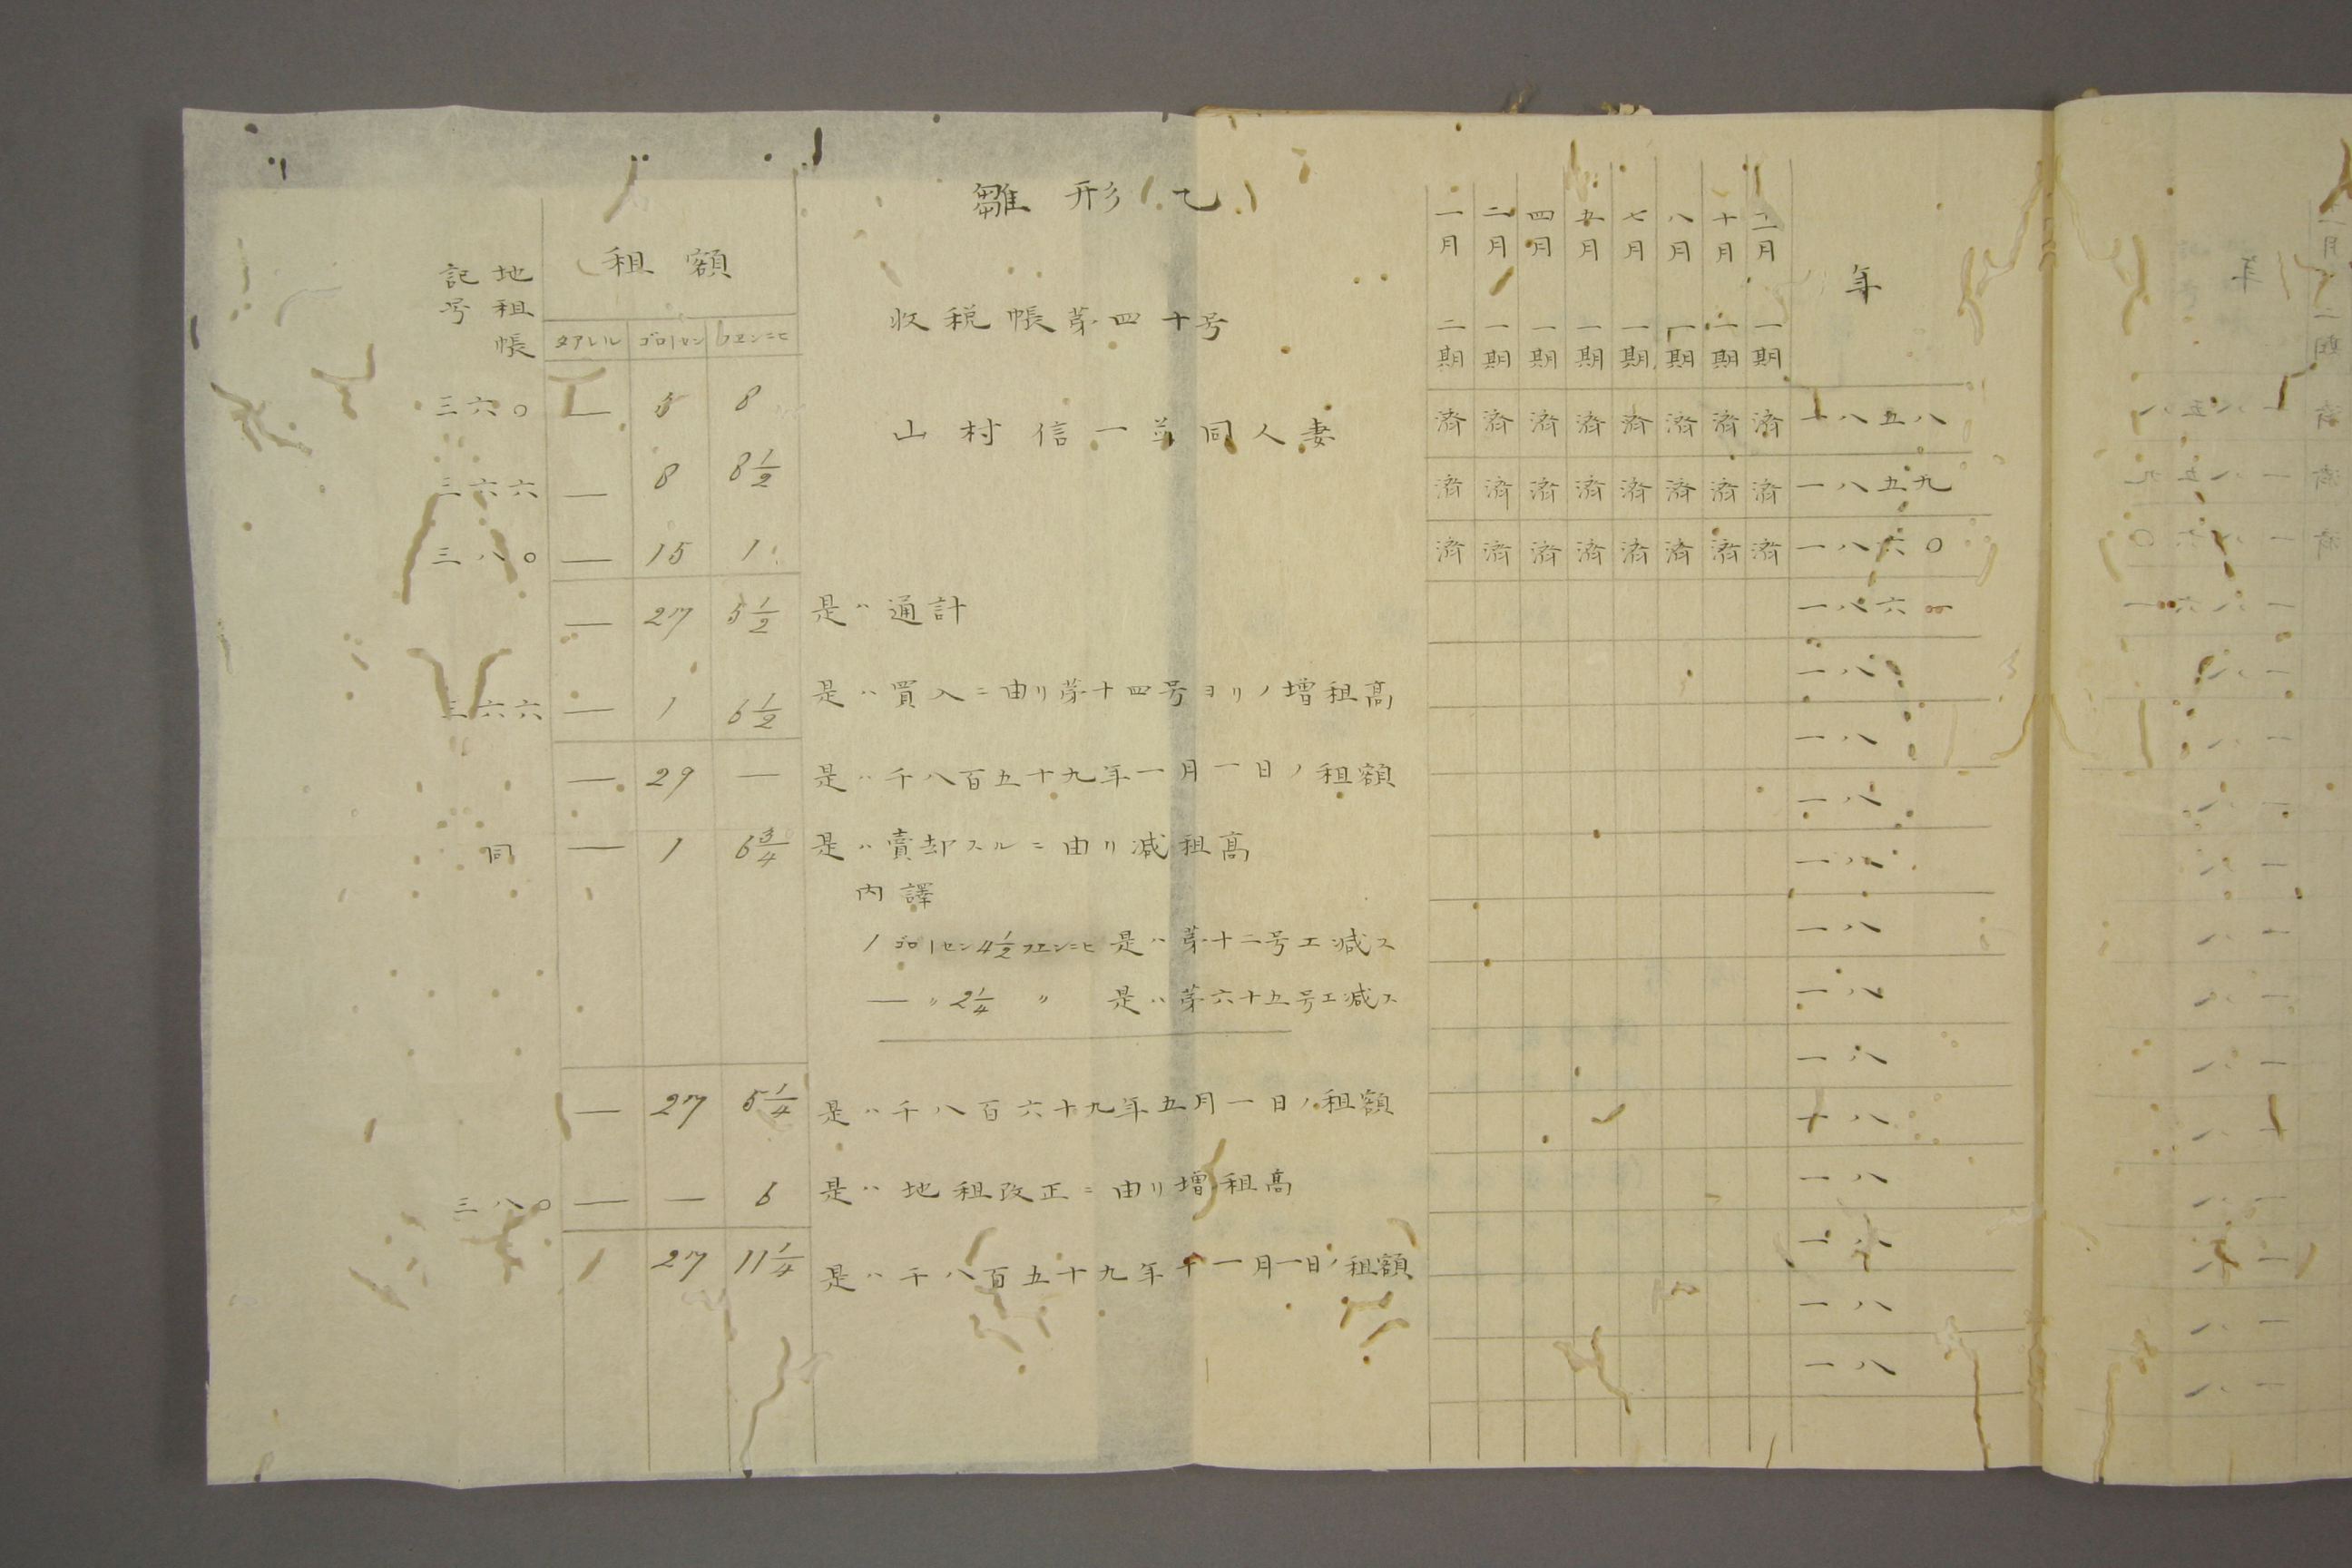 雛形乙
収税帳第四十号
山村信一並同人妻
地租帳
記号
租額
タアレル グロ|セン フエンニヒ
三六〇 — 3 8
三六六 — 8 8 1/2
三八〇 — 15 1
— 27 5 1/2 是ハ通計
三六六 — 1 6 1/2 是ハ買入ニ由リ第十四号ヨリノ増租高
— 29 — 是ハ千八百五十九年一月一日ノ租額
同 — 1 6 3/4 是ハ賣却スルニ由リ減租高
内譯
1 グロ|セン 4 1/2 フエンニヒ 是ハ第十二号エ減ス
— 〃 2 1/4 〃 是ハ第六十五号エ減ス
— 27 5 1/4 是ハ千八百六十九年五月一日ノ租額
三八〇 — — 6 是ハ地租改正ニ由リ増租高
1 27 11 1/4 是ハ千八百五十九年十一月一日ノ租額
一月 二月 四月 五月 七月 八月 十月 十一月 年
二期 一期 一期 一期 一期 一期 一期 一期
済 済 済 済 済 済 済 済 一八五八
済 済 済 済 済 済 済 済 一八五九
済 済 済 済 済 済 済 済 一八六〇
一八六一
一八
一八
一八
一八
一八
一八
一八
一八
一八
一八
一八
一八